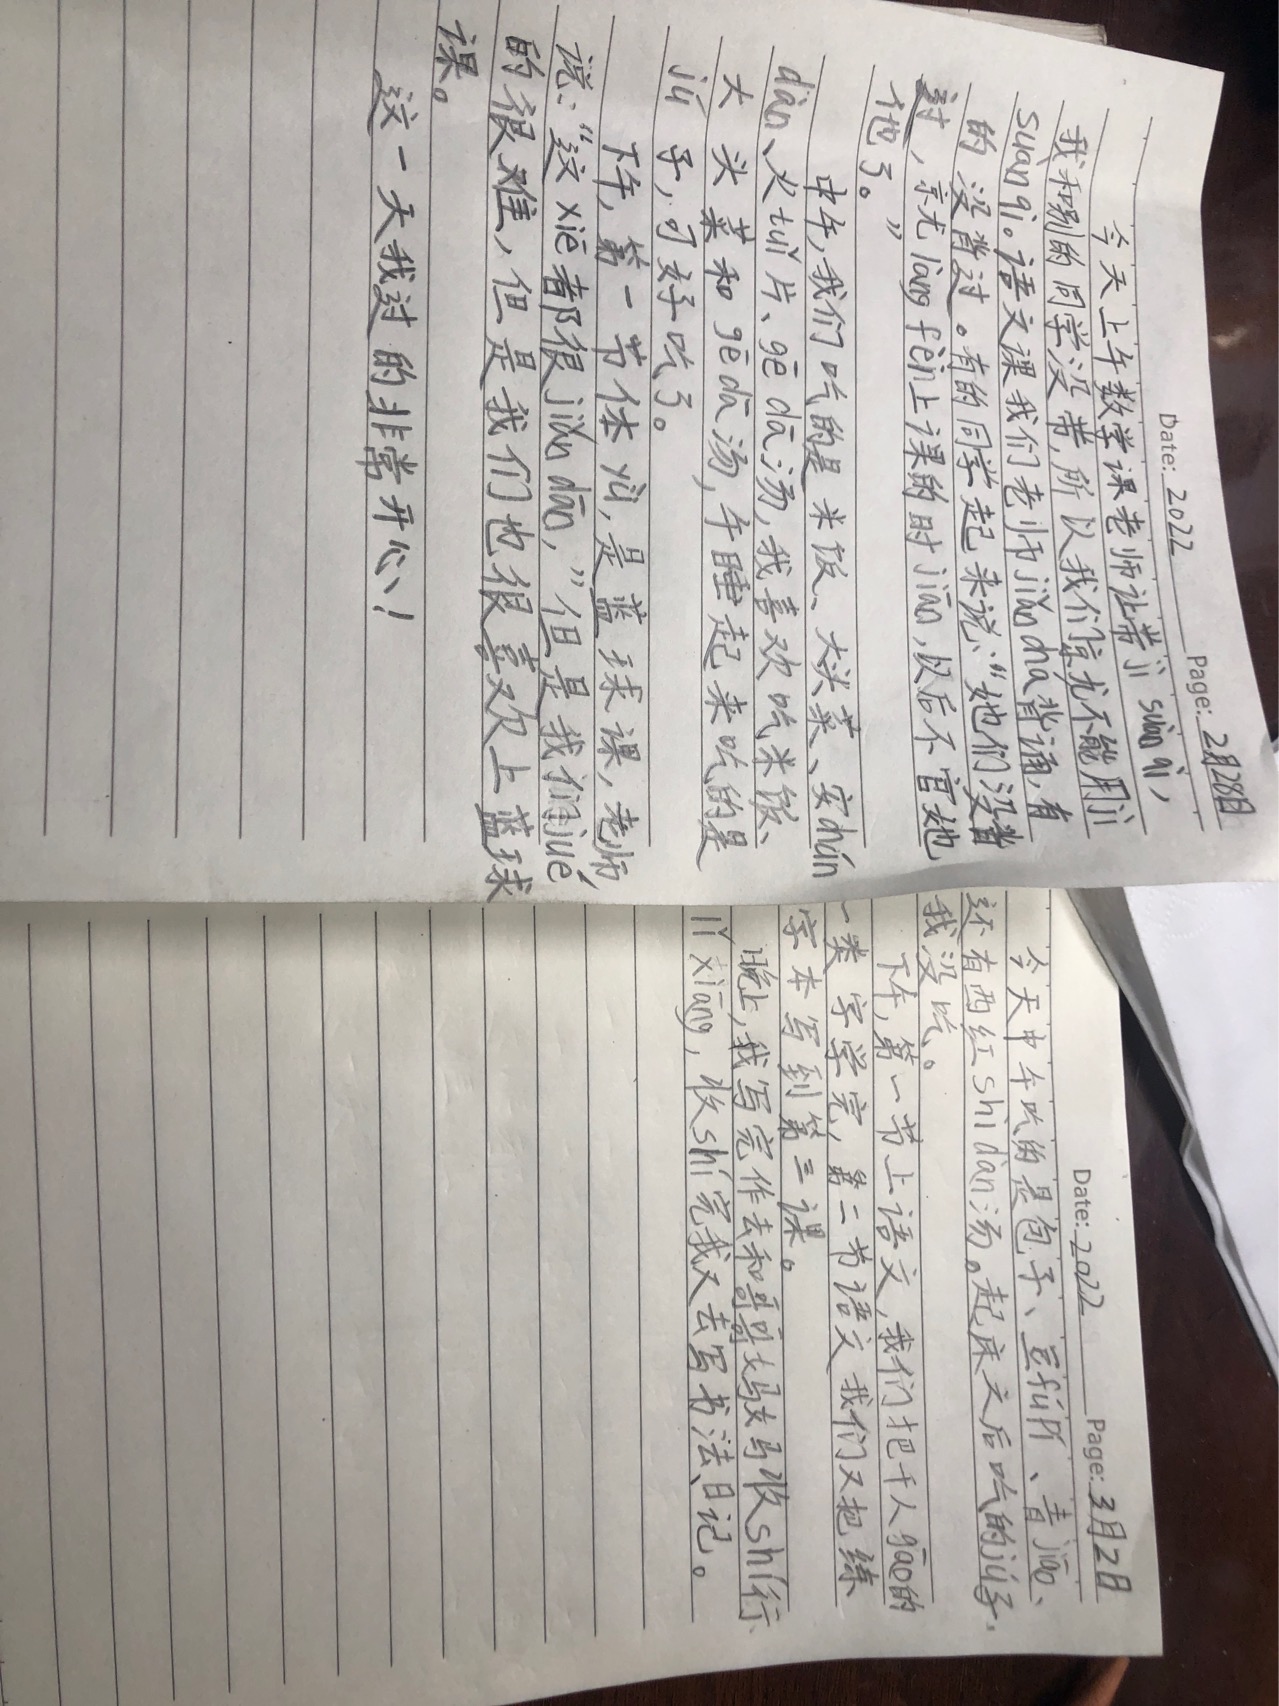 Date: 2022 Page: 2月28日
今天上午数学课老师让带jì suàn qì，
我和别的同学没带，所以我们就不能用jì
suàn qì。语文课我们老师jiǎn chá背诵，有
的没背过。有的同学起来说：“她们没背
过，就làng fèi上课的时jiān，以后不管她
他了。”
中午，我们吃的是米饭、大头菜、安chún
dàn、火tuǐ片、gē dā汤，我喜欢吃米饭、
大头菜和gē dā汤，午睡起来吃的是
jú子，可好吃了。
下午，第一节体yù，是蓝球课，老师
说：“这xiē都很jiǎn dān，”但是我们jué
的很难，但是我们也很喜欢上蓝球
课。
这一天我过的非常开心！
Date: 2022 Page: 3月2日
今天中午吃的是包子、豆fǔ pí、青jiāo、
还有西红shì dàn汤。起床之后吃的jú子，
我没吃。
下午，第一节上语文，我们把千人gāo的
一类字学完，第二节语文我们又把练
字本写到第三课。
晚上，我写完作去和哥哥妈妈收shí行
lǐ xiāng，收shí完我又去写书法、日记。